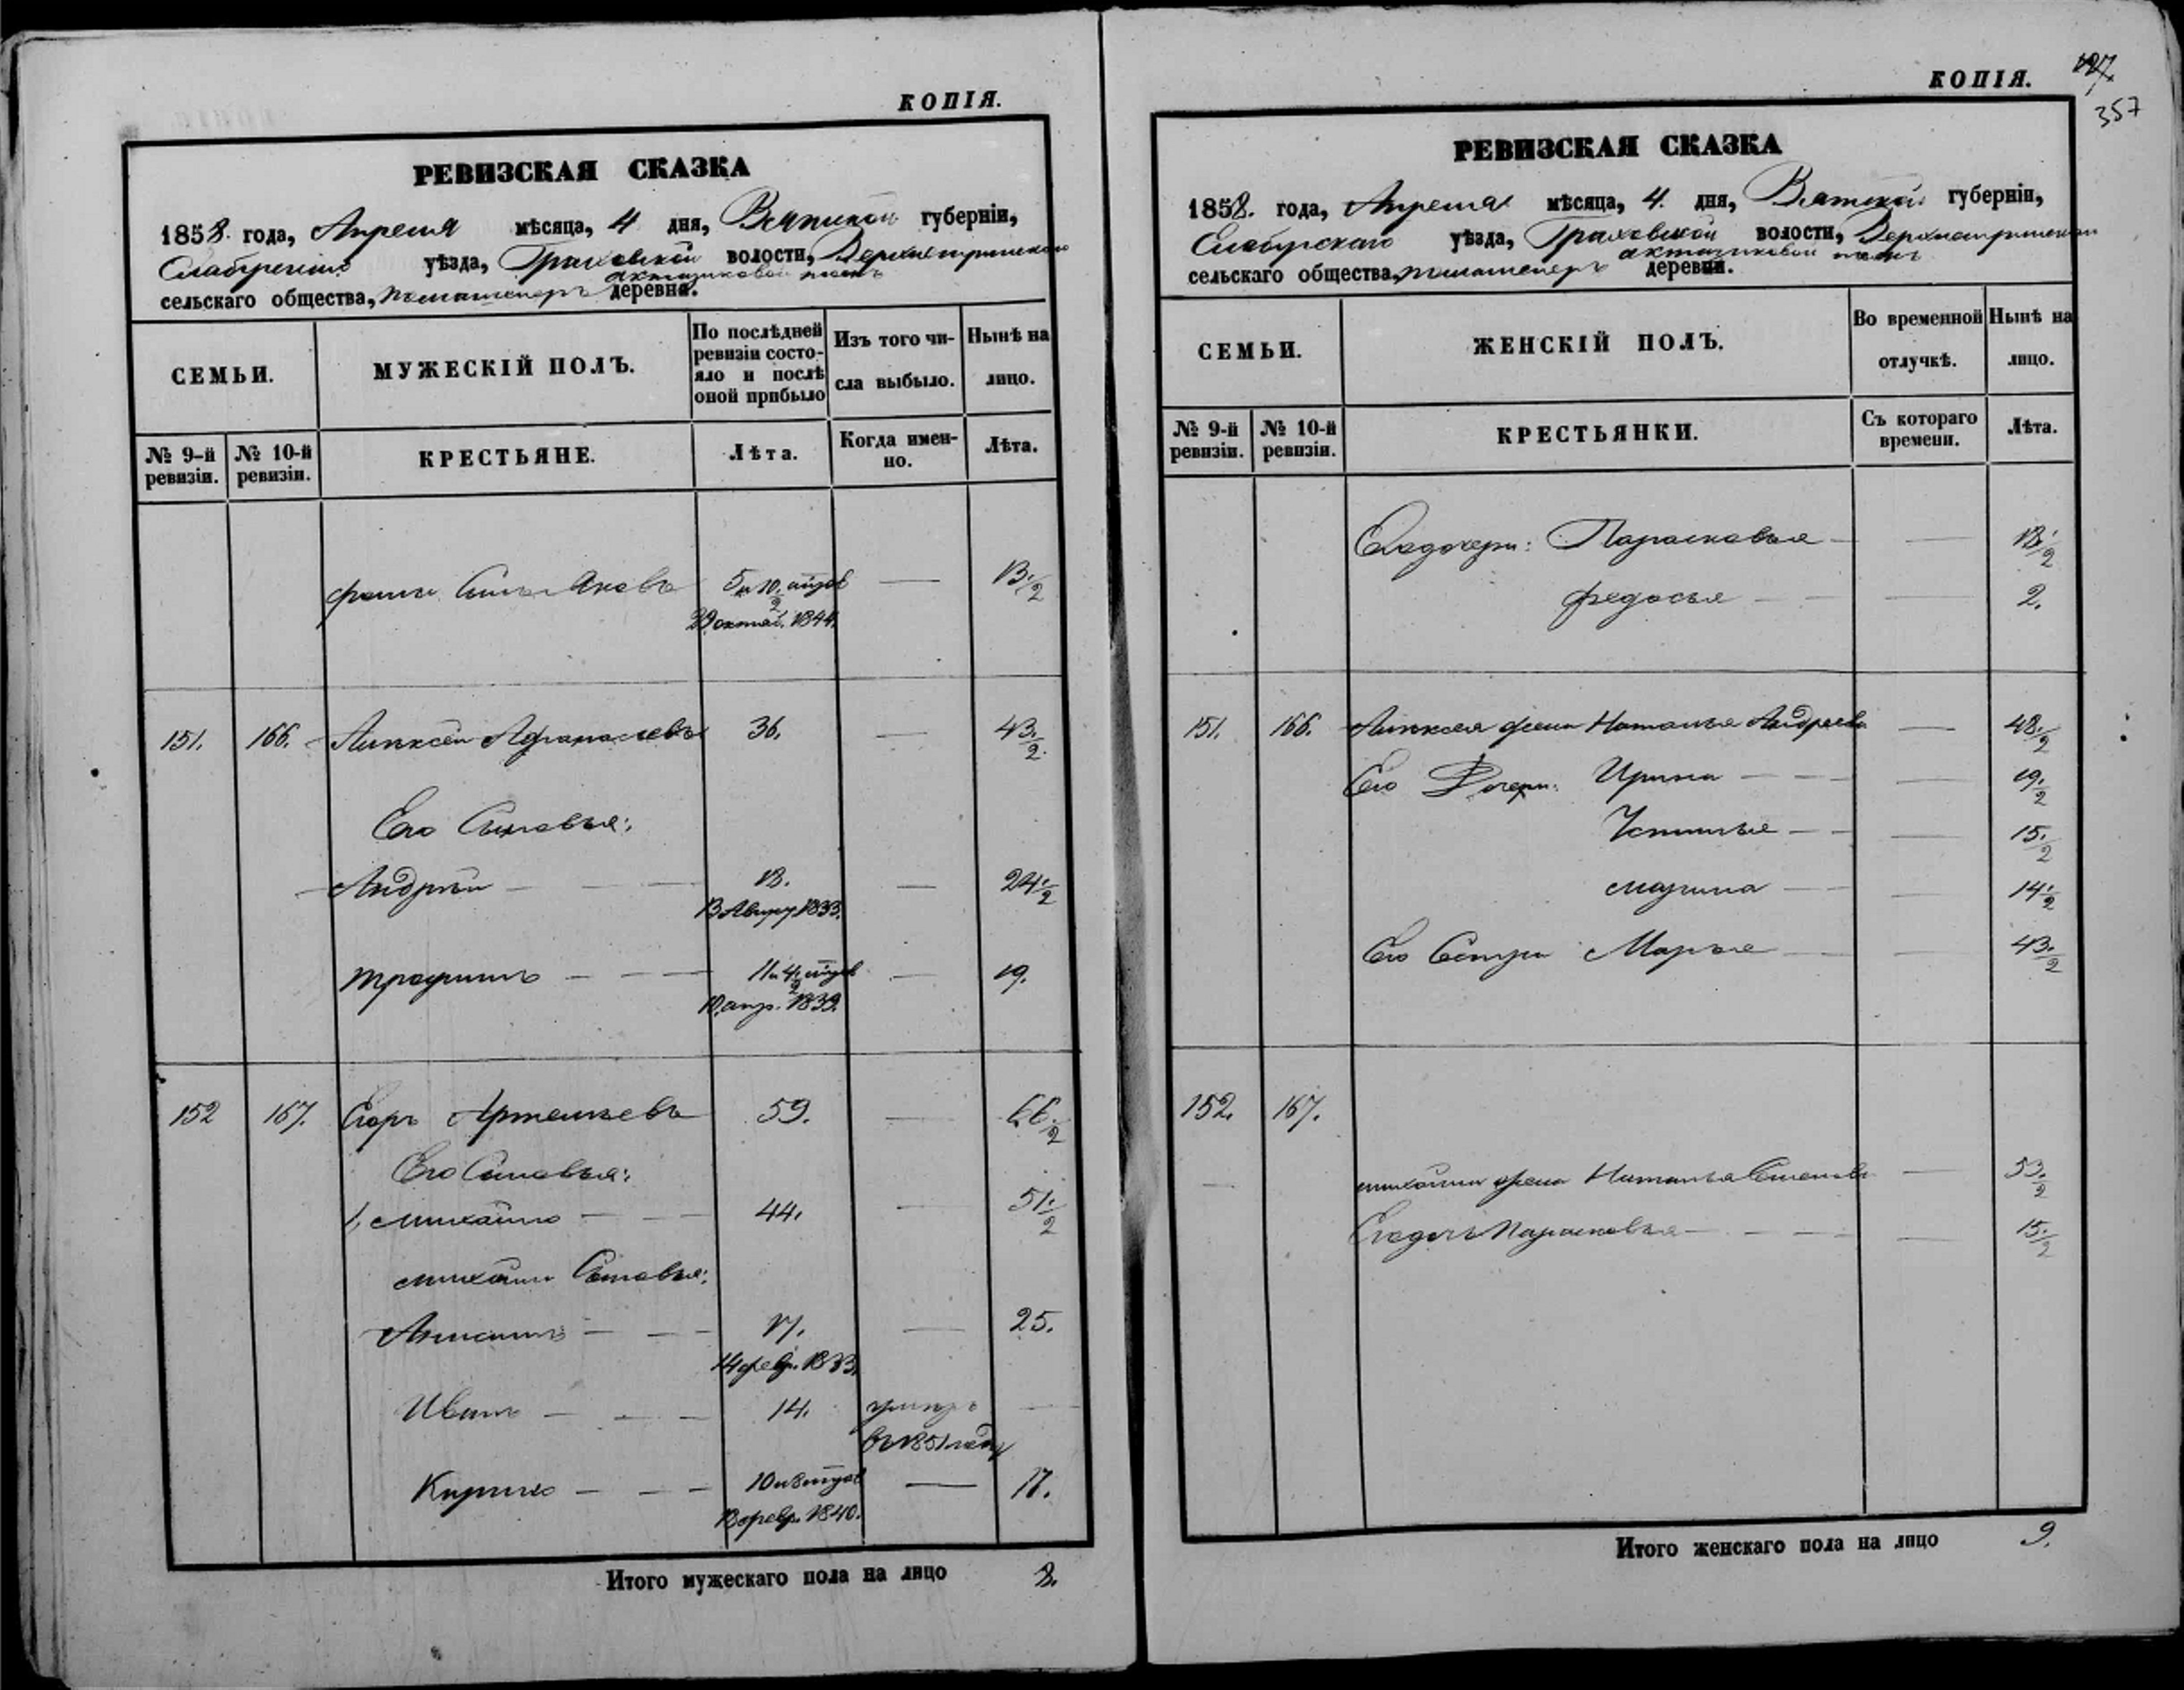 КОПІЯ.
РЕВИЗСКАЯ СКАЗКА
1858. года, Апреля мѣсяца, 4 дня, Вятской губерніи,
Елабугскаго уѣзда, Граховской волости,
сельскаго общества, деревни.
СЕМЬИ.
МУЖЕСКІЙ ПОЛЪ.
По послѣдней ревизіи состояло и послѣ оной прибыло
Изъ того числа выбыло.
Нынѣ на лицо.
№ 9-й ревизіи.
№ 10-й ревизіи.
КРЕСТЬЯНЕ.
Лѣта.
Когда именно.
Лѣта.
29 октяб. 1844.
151. 166. Алексѣй Афанасьевъ 36. — 43.½
Его Сыновья:
Андрей — 18. — 24.½
13 Авгус. 1833.
Трофимъ — — 11 и 4.½ — 19.
10 апр. 1839.
152 167. Егоръ Артемьевъ 59. — 66.½
Его Сыновья:
1, Михайло — — 44. — 51.½
Михайлы Сыновья:
— — 17. — 25.
14 февр. 1833.
Иванъ — — — 14. умеръ —
въ 1851 году
Кирило — — — 10 и 8 — 17.
февр. 1840.
Итого мужескаго пола на лицо 8.
КОПІЯ.
357
РЕВИЗСКАЯ СКАЗКА
1858. года, Апреля мѣсяца, 4. дня, Вятской губерніи,
Елабугскаго уѣзда, Граховской волости,
сельскаго общества, деревни.
СЕМЬИ.
ЖЕНСКІЙ ПОЛЪ.
Во временной отлучкѣ.
Нынѣ на лицо.
№ 9-й ревизіи.
№ 10-й ревизіи.
КРЕСТЬЯНКИ.
Съ котораго времени.
Лѣта.
Его дочери: Парасковья — —
Федосья — — — 2.
151. 166. Алексея жена Наталья Андреева — 48.½
Его Дочери: Ирина — — — 19.½
Устинья — — — 15.½
Марина — — 14.½
Его Сестра Марья — — 43.½
152. 167.
— Михайлы жена Наталья — 53.½
Его дочь Парасковья — — — — 15.½
Итого женскаго пола на лицо 9.